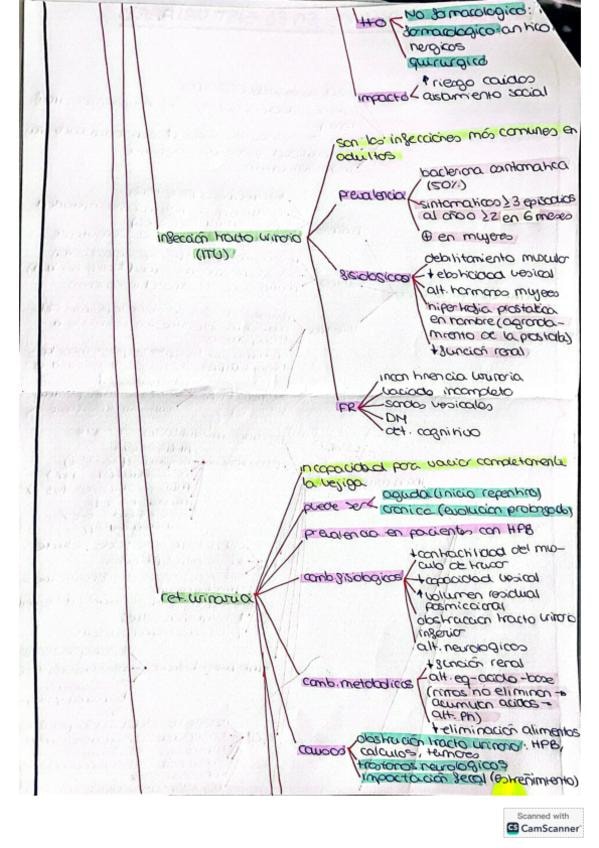 TTO
No farmacologico:
farmacologico: antico
nergicos
quirurgico
impacto
↑ riesgo caidas
aislamiento social
infección tracto urinario
(ITU)
son las infecciones más comunes en
adultos
prevalencia
bacteriuria asintomatica
(50%)
sintomaticos ≥3 episodios
al año o ≥2 en 6 meses
⊕ en mujeres
fisiologicos
debilitamiento muscular
↓ elasticidad vesical
alt. hormonas mujeres
hiperplasia prostatica
en hombre (agranda-
miento de la prostata)
↓ función renal
FR
incontinencia urinaria
vaciado incompleto
sondas vesicales
DM
det. cognitivo
ret. urinaria
incapacidad para vaciar completamente
la vejiga
puede ser
aguda (inicio repentino)
cronica (evolucion prolongada)
prevalencia en pacientes con HPB
camb. fisiologicos
↓ contractilidad del mus-
culo detrusor
↓ capacidad vesical
↑ volumen residual
posmiccional
obstruccion tracto urinario
inferior
alt. neurologicos
camb. metabolicos
↓ función renal
alt. eq- acido-base
(riñones no eliminan →
acumulan acidos →
alt. Ph)
↓ eliminación alimentos
causas
obstrución tracto urinario: HPB,
calculos, tumores
trastornos neurologicos
impactación fecal (estreñimiento)
Scanned with
CS CamScanner